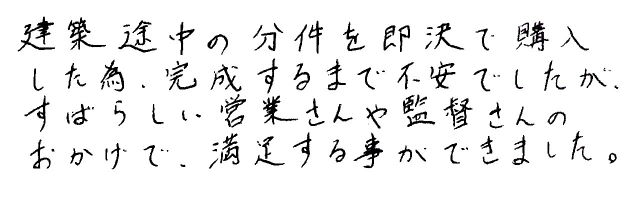 建築途中の分件を即決で購入
した為、完成するまで不安でしたが、
すばらしい営業さんや監督さんの
おかげで、満足する事ができました。